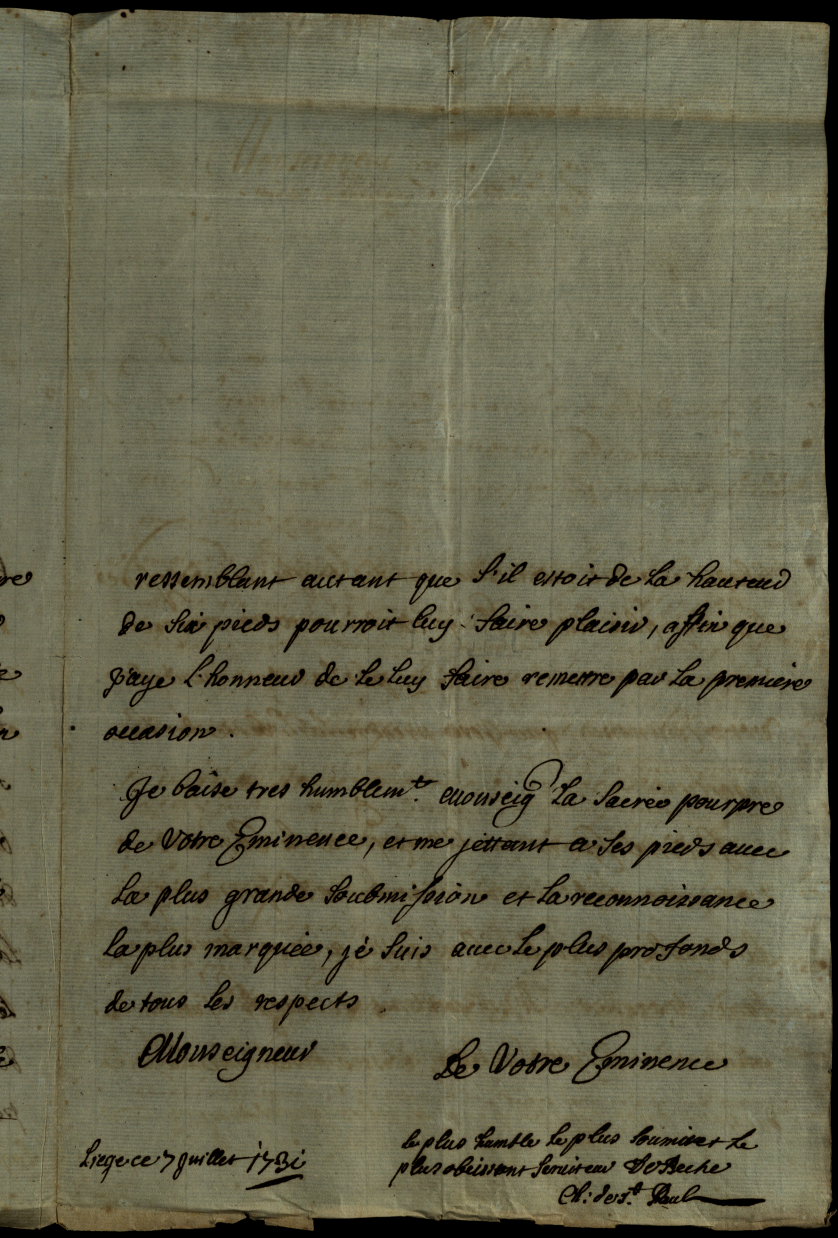 ressemblant autant que s'il estoit de la hauteur
de six pieds pourroit luy faire plaisir, affin que
j'aye l'honneur de le luy faire remettre par la premiere
occasion.
Je baise tres humblemt. Monseigr La Sacrée pourpre
de Votre Eminence, et me jettant a ses pieds avec
La plus grande soubmission et la reconnoissance
la plus marquée, je suis avec le plus profonds
de tous les respects
Monseigneur
De Votre Eminence
le plus humble le plus soumis et le
plus obeissant serviteur
Ch: de St. Paul
Liege ce 7 Juillet 1731